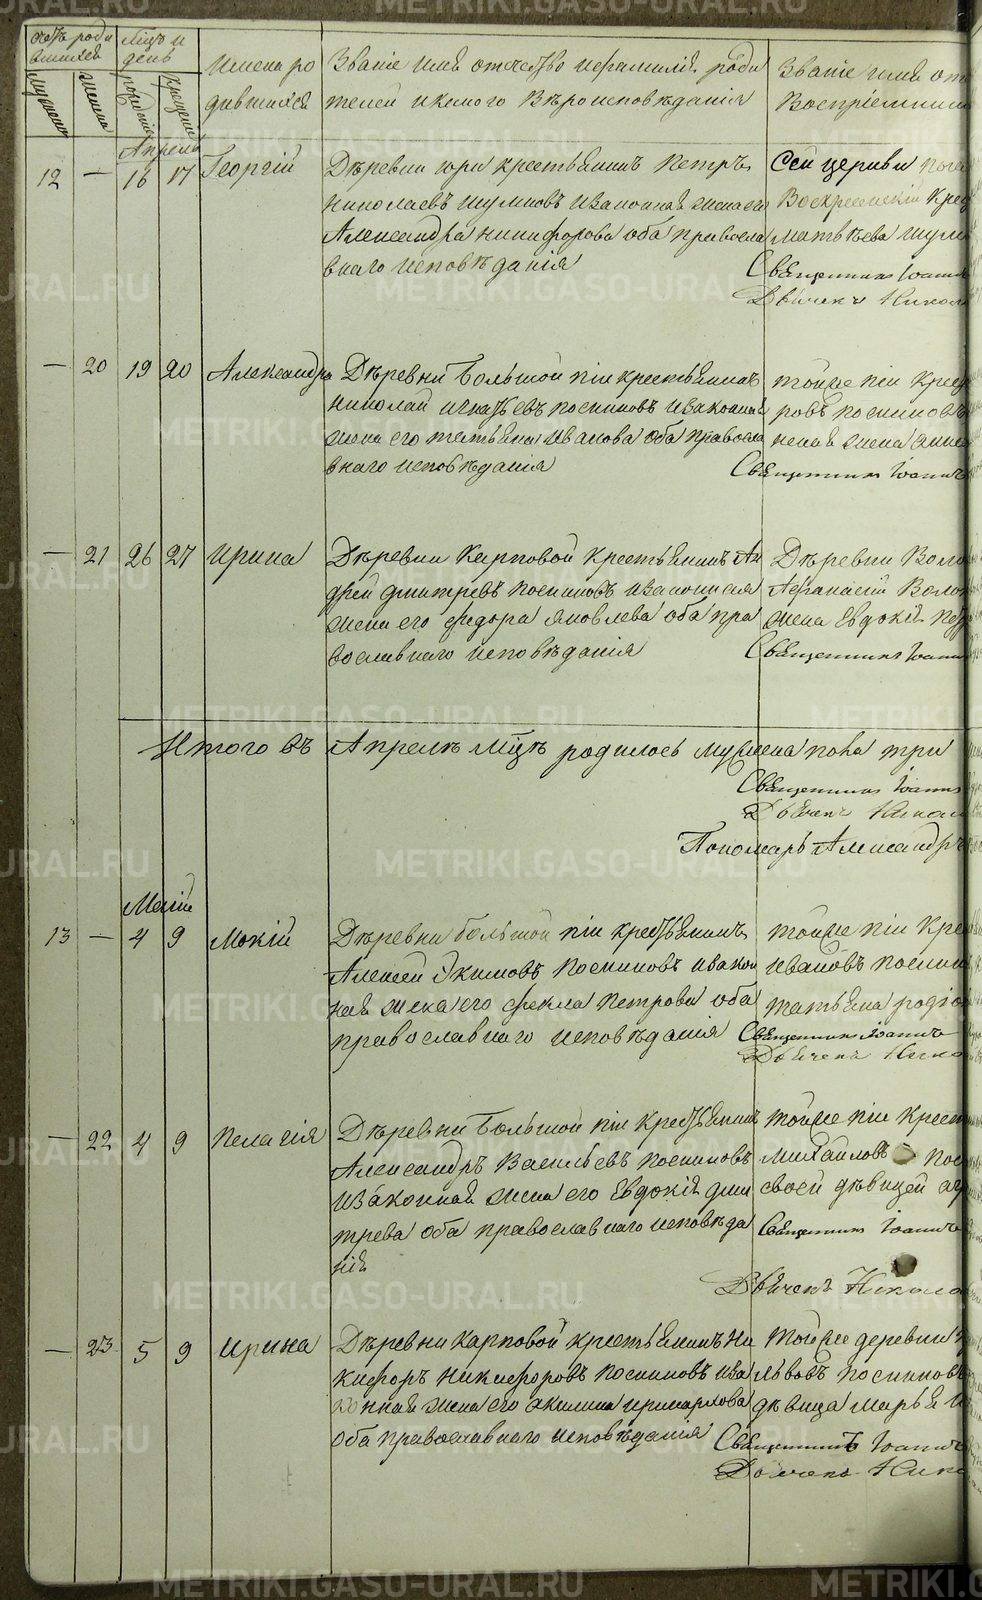 Счетъ роди
вшихся
Мѣцъ и
день
Имена ро
дившихся
Званіе имя отчество и фамилія роди
телей и какого вѣроисповѣданія
Званіе имя от
Воспріемник
Мужеска
Женска
рожденія
крещенія
Апреля
12 — 16 17 Георгій
Дѣревни Юри крестьянинъ Петръ
Николаевъ Шумковъ и законная жена его
Александра Никифорова оба правосла
внаго исповѣданія
Сей церкви
Воскресенскій
Матвѣева Шум
Священникъ Іоанн
Дьячекъ Никол
— 20 19 20 Александра
Дѣревни Большой піи крестьянинъ
Николай Игнатьевъ Поскинковъ и законная
жена его Татьяна Иванова оба правосла
внаго исповѣданія
Тойже піи крес
жена Анна
Священникъ Іоаннъ
— 21 26 27 Ирина
Дѣревни Карповой крестьянинъ Ан
дрей Дмитревъ Поскинковъ и законная
жена его Федора Яковлева оба пра
вославнаго исповѣданія
Дѣревни
Афанасій
жена Евдокія
Священникъ Іоанн
Итого въ Апрелѣ мцѣ родилось мужеска пола три
Священникъ Іоанн
Дьячекъ Никол
Пономарь Александръ
Маій
13 — 4 9 Мокій
Дѣревни большой піи крестьянинъ
Алексей Экимовъ Поскинковъ и закон
ная жена его Фекла Петрова оба
православнаго исповѣданія
Тойже піи Кре
Ивановъ
Татьяна Родіо
Священникъ Іоаннъ
Дьячекъ Нико
— 22 4 9 Пелагія
Дѣревни Большой піи крестьянинъ
Александръ Васильевъ Поскинковъ
и законная жена его Евдокія Дми
трева оба православнаго исповѣда
нія
Тойже піи Крест
Михайловъ
своей дѣвицей
Священникъ Іоаннъ
Дьячекъ Никола
— 23 5 9 Ирина
Дѣревни Карповой крестьянинъ Ни
кифоръ Никифоровъ Поскинковъ и за
конная жена его Акилина
оба православнаго исповѣданія
Тойже деревни
Львовъ Поскинковъ
дѣвица Марья
Священникъ Іоаннъ
Дьячекъ Нико
METRIKI.GASO-URAL.RU